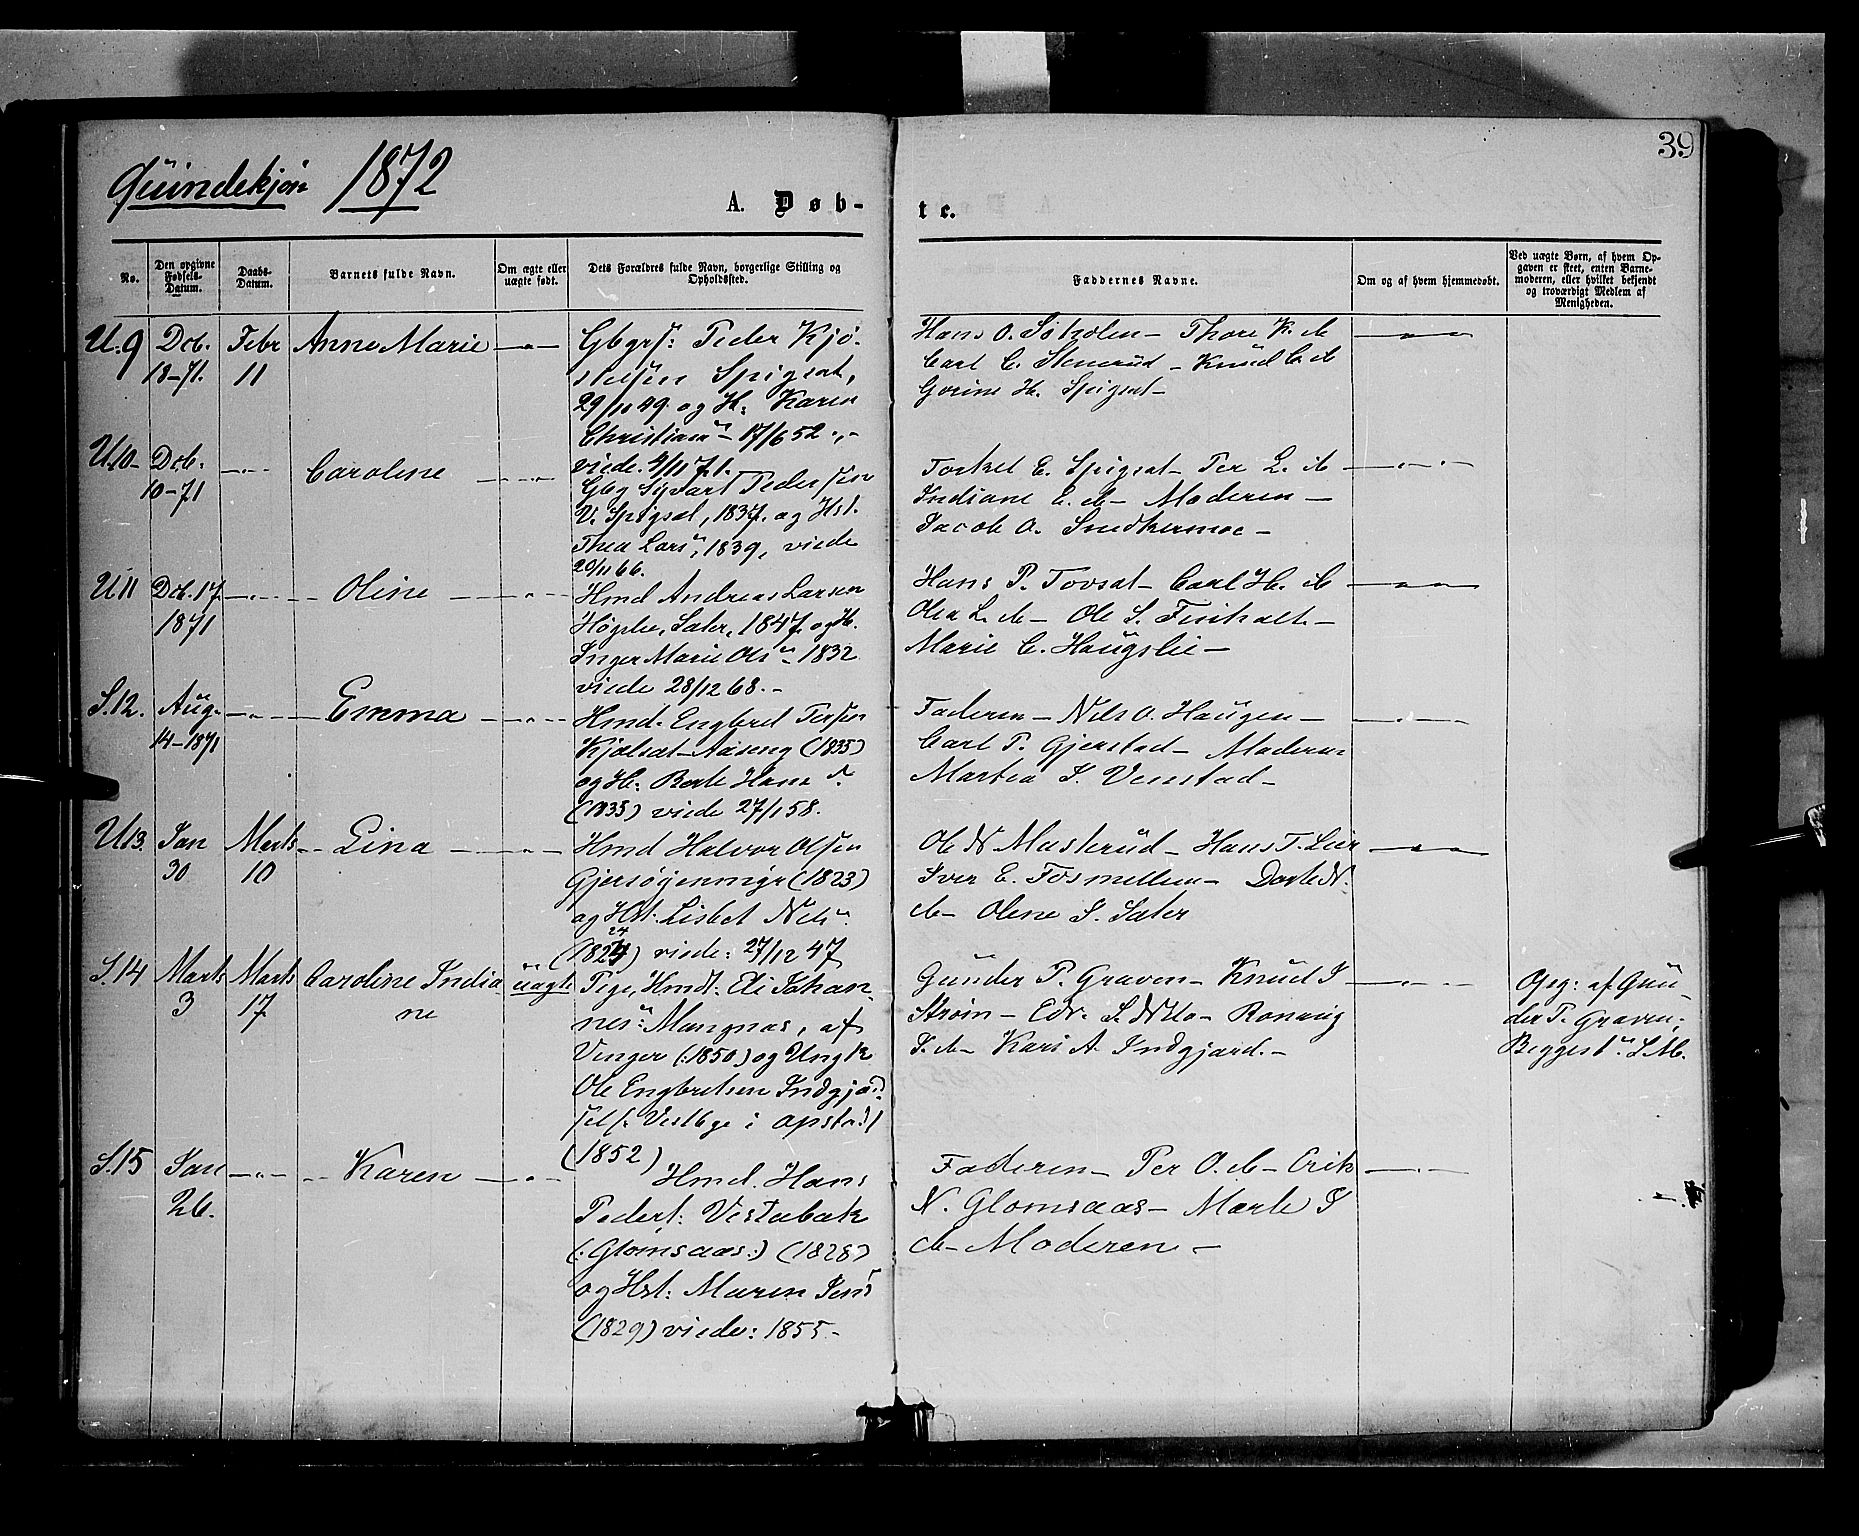 39
Quindekjøn 1872
A. Døb-
te.
No.
Den opgivne Fødsels-Datum.
Daabs-Datum.
Barnets fulde Navn.
Om ægte eller uægte født.
Dets Forældres fulde Navn, borgerlige Stilling og Opholdssted.
Faddernes Navne.
Om og af hvem hjemmedøbt.
Ved uægte Børn, af hvem Opgaven er skeet, enten Barnemoderen, eller hvilket bekjendt og troværdigt Medlem af Menigheden.
U. 9 Dcb. 18-71. Febr 11 Anne Marie
Peder Kjø-
Spigset,
29/10 49 og H: Karen
Christians 17/6 52
viede 4/11 71.
Hans O. Thore K.
Carl C. Stenerud - Knud C.
H. Spigset -
U.10 Dcb. 10-71 Caroline
Gbg Sivart Pedersen
V. Spigset, 1837. og Hst.
Thea Lars, 1839, viede
20/11 66.
Torkel E. Spigset - Per L.
Indiane E. - Moderen -
Jacob O. Snedkermoe -
U 11 Dcb. 17 1871 Oline
Hmd Andreas Larsen
Sæter, 1847. og H.
Inger Marie Ols 1832
viede 28/12 68. -
Hans P. Tovset - Carl H.
L. - Ole S.
Marie C. Haugslie -
S. 12. Aug. 14-1871 Emma
Hmd. Engbret
Kjølset - Aaseng (1835)
og H: Berte Hans
(1835) viede 27/1 58.
Faderen - Nels O. Haugen -
Carl P. Gjerstad - Moderen
Martea S. Venstad -
U 13. Jan 30 Marts 10 Lina
Hmd Halvor Olsen
(1823)
og Hst: Lisbet Nels
24
(1824) viede: 27/12 47
Ole N Masterud - Hans T. Lier
Iver E. - Dorte N.
Olene S. Sæter
S. 14 Marts 3 Marts 17 Caroline India-
ne
uægte
Pige, Hmdt: Eli Johan-
nes Mangnæs, af
Vinger (:1850) og Ungk
Ole Engbretsen Indgjær
Vestbye i opstad
(1852)
Gunder P. Graven - Knud I
Strøm - Edv. S. - Ronnaug
Kari A. Indgjærd. -
Opg: af Gun-
der P. Graven,
S. 15 Jan 26. Karen
Hmd. Hans
Peders: Vestabæk
(:Glomsaas:) (1828)
og Hst: Maren Jens
(1829) viede: 1855 -
Faderen - Per O. - Erik
N. Glomsaas - Marte
Moderen -